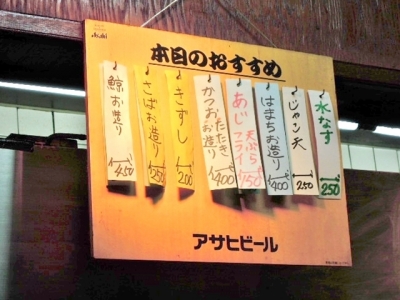 Asahi
本日のおすすめ
水なす
250
じゃこ天
250
はまちお造り
400
あじ 天ぷら フライ
350
かつお たたき お造り
400
きずし
200
さばお造り
350
鯨お造り
450
アサヒビール